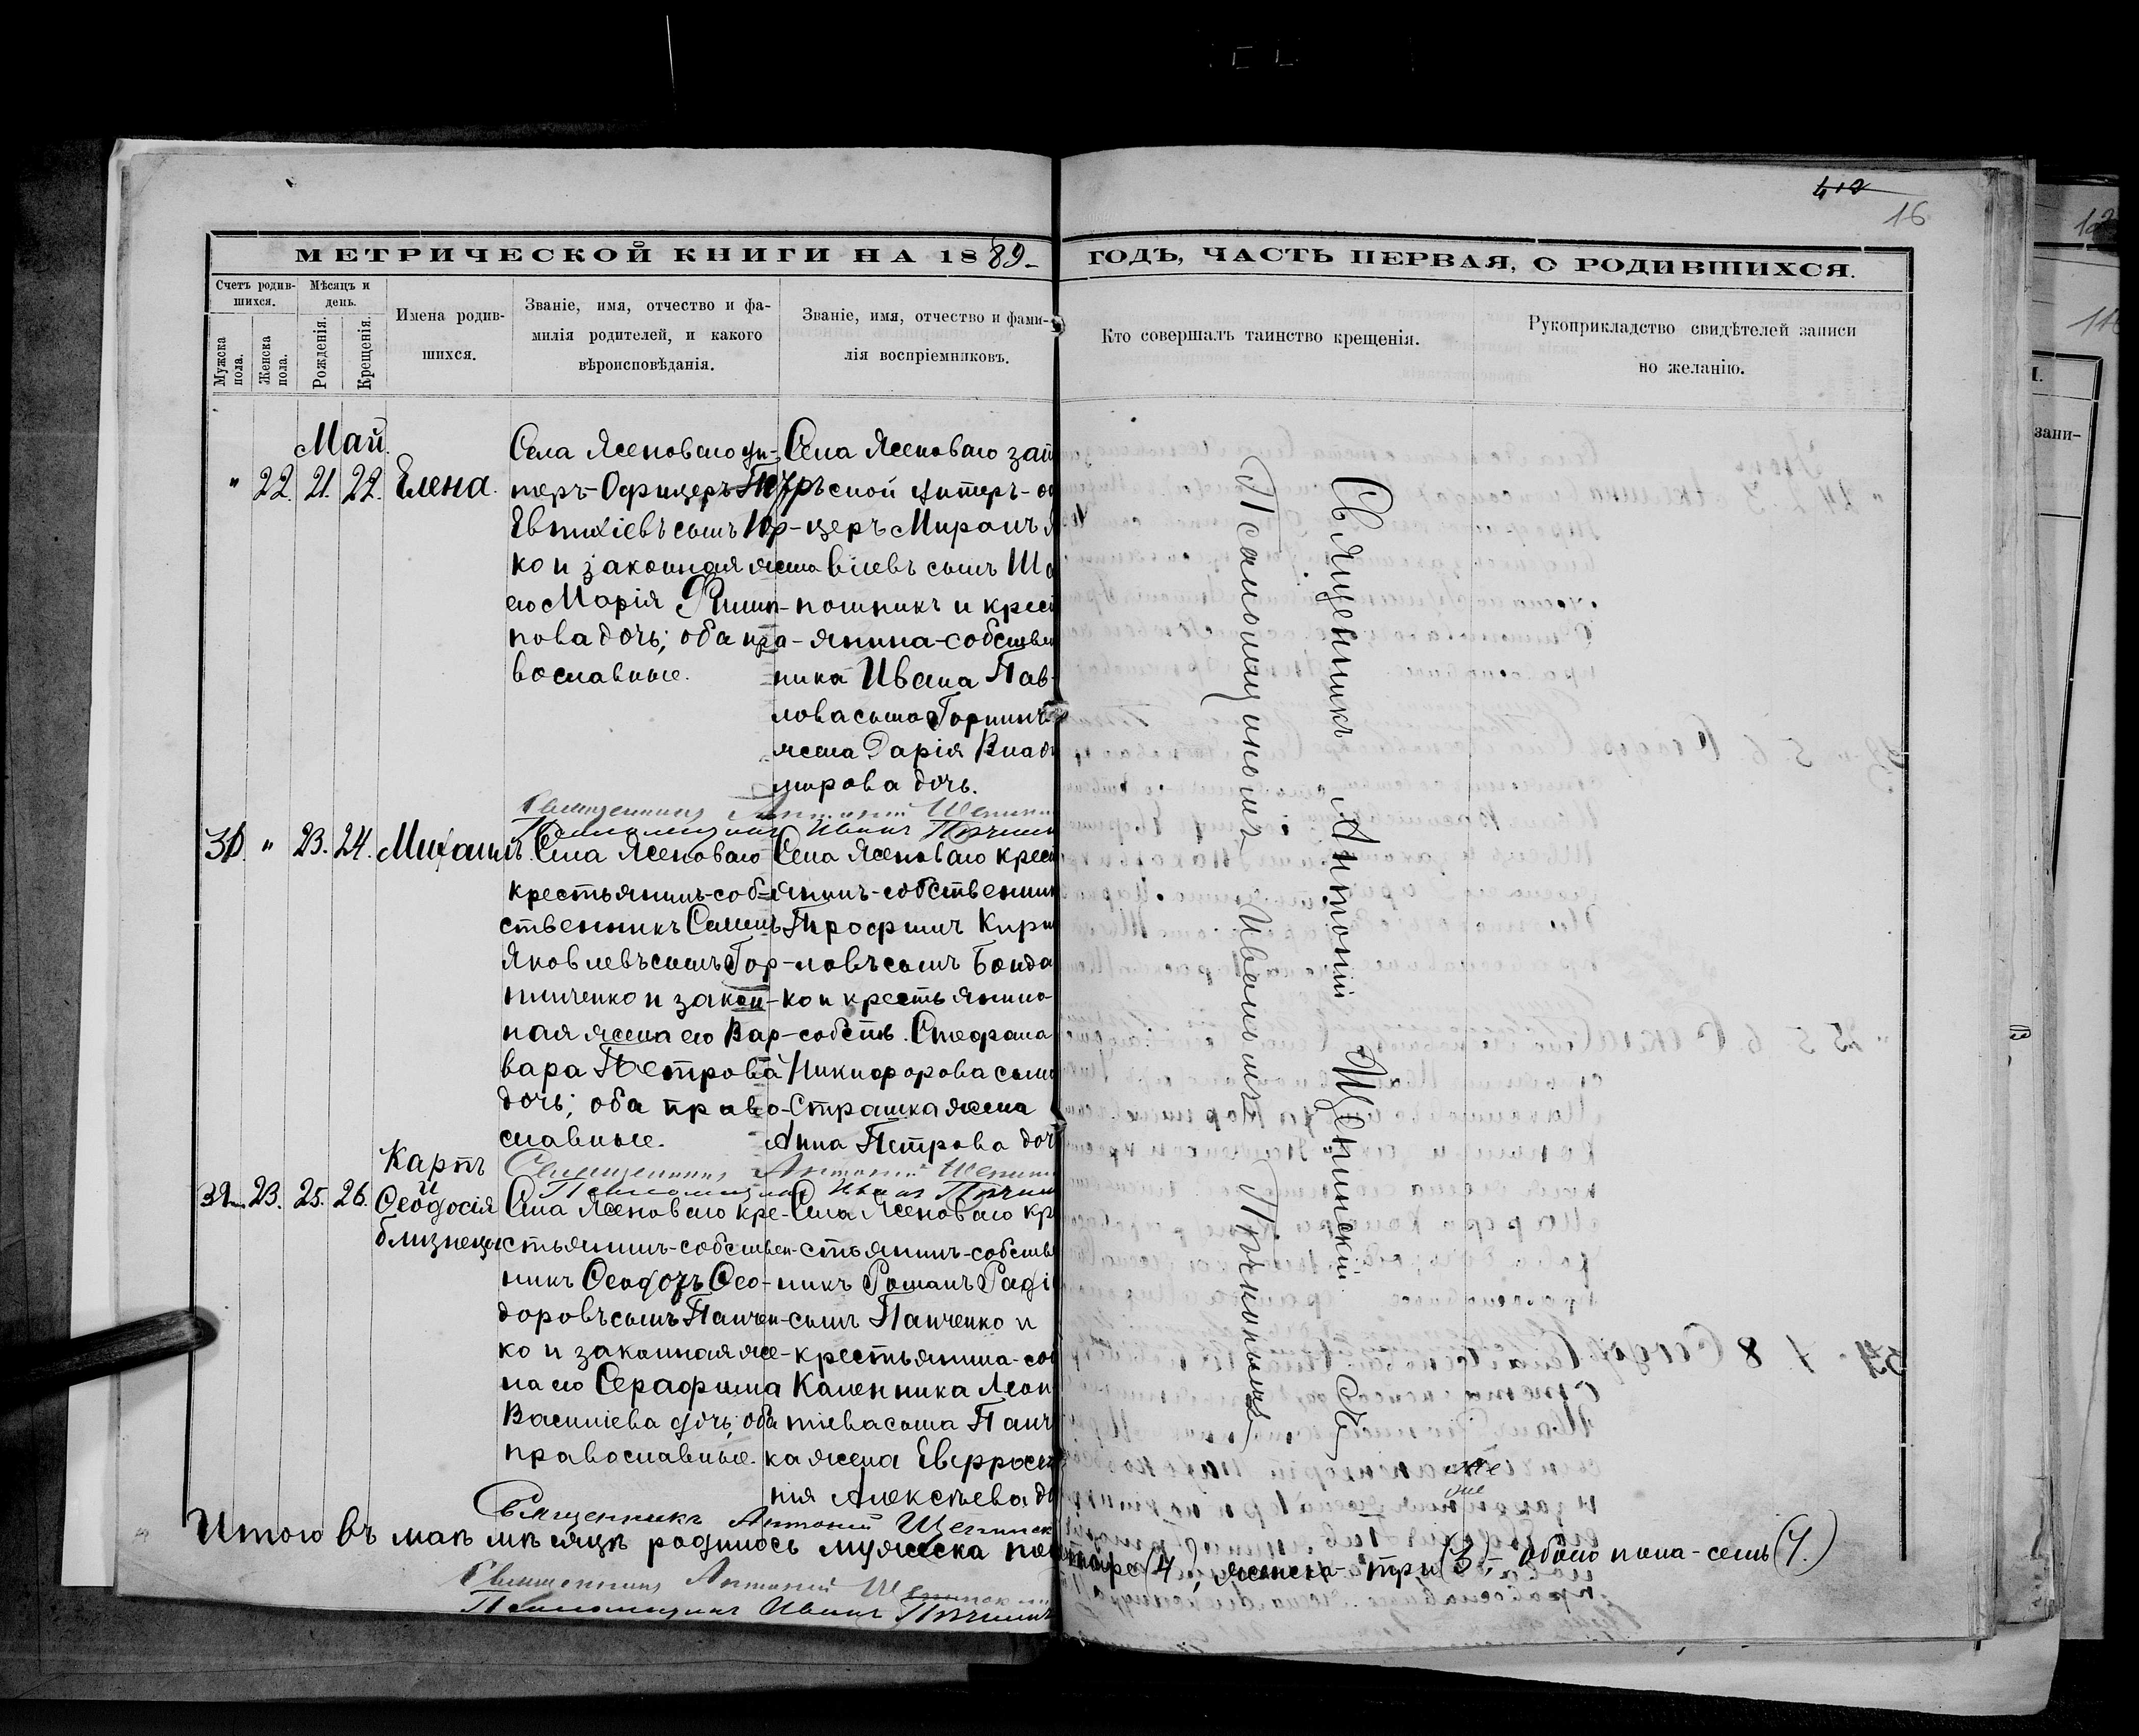 412
16
МЕТРИЧЕСКОЙ КНИГИ НА 1889
ГОДЪ, ЧАСТЬ ПЕРВАЯ, О РОДИВШИХСЯ.
Счетъ родив-
шихся.
Мужска пола.
Женска пола.
Мѣсяцъ и
день.
Рожденія.
Крещенія.
Имена родив-
шихся.
Званіе, имя, отчество и фа-
милія родителей, и какого
вѣроисповѣданія.
Званіе, имя, отчество и фами-
лія воспріемниковъ.
Кто совершалъ таинство крещенія.
Рукоприкладство свидѣтелей записи
по желанію.
Май.
" 22. 21. 22. Елена.
Села Ясеноваго ун-
теръ-Офицеръ
Евтихіевъ сынъ Юр-
ко и законная жена
его Марія Филип-
пова дочь; оба пра-
вославные.
Села Ясеноваго зап
сной Унтеръ-оф
церъ Миронъ
віевъ сынъ Ша
пошникъ и крест
янина-собствен
ника Ивана Пав-
лова сына
жена Дарія Влади
мірова дочь.
Священникъ Антоній Щепинск
Псаломщикъ Иванъ
31. " 23. 24. Михаилъ.
Села Ясеноваго
крестьянинъ-соб-
ственникъ
Яковлевъ сынъ Гор-
пинченко и закон-
ная жена его Вар-
вара Петрова
дочь; оба право-
славные.
Села Ясеноваго крест
янинъ-собственник
Трофимъ Кири
ловъ сынъ Бонда
ко и крестьянина-
собств. Стефана
Никифорова сына
Страшка жена
Анна Петрова доч
Священникъ Антоній Щепинск
Псаломщикъ Иванъ
32. 23. 25. 26.
Карпъ
и
Ѳеодосія
близнецы
Села Ясеноваго кре-
стьянинъ-собствен-
никъ Ѳеодоръ Ѳео-
доровъ сынъ Панчен-
ко и законная же-
на его Серафима
Василіева дочь; оба
православные.
Села Ясеноваго кр
стьянинъ-собстве
никъ Романъ Радіо
сынъ Панченко и
крестьянина-соб
Каленника Леон
тіева сына Панч
ка жена Евфроси
нія Алексѣева до
Священникъ Антоній Щепинск
Священникъ Антоній Щепинскій
Псаломщикомъ Иваномъ
Итого въ маѣ мѣсяцѣ родилось мужеска пола четыре (4), женска три (3), обоего пола-семь (7.)
Священникъ Антоній Щепинскій
Псаломщикъ Иванъ